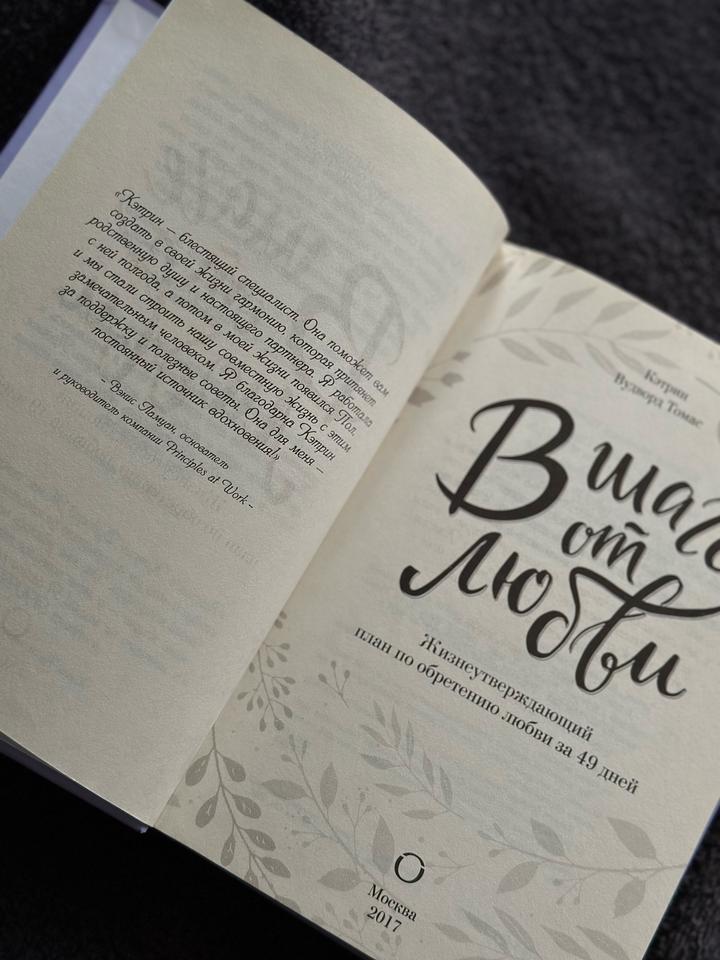 «Кэтрин — блестящий специалист. Она поможет вам
создать в своей жизни гармонию, которая притянет
родственную душу и настоящего партнера. Я работала
с ней полгода, а потом в моей жизни появился Пол,
и мы стали строить нашу совместную жизнь с этим
замечательным человеком. Я благодарна Кэтрин
за поддержку и полезные советы. Она для меня –
постоянный источник вдохновения!»
- Вэнис Ламуен, основатель
и руководитель компании Principles at Work -
Кэтрин
Вудворд Томас
В шаге
от
любви
Жизнеутверждающий
план по обретению любви за 49 дней
Москва
2017